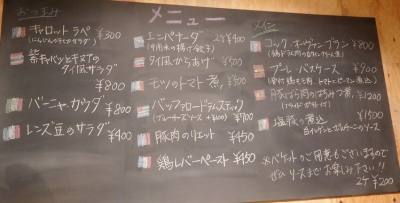 おつまみ
キャロットラペ ¥300
(にんじんのサラダ)
紫キャベツとキヌアの
タイ風サラダ
¥800
バーニャ・カウダ ¥800
レンズ豆のサラダ ¥400
メニュー
エンパナーダ 2ケ ¥400
(ひき肉の揚げ餃子)
タイ風からあげ ¥500
モツのトマト煮 ¥500
バッファロードラムスティック
(ブルーチーズソース +¥100) ¥700
豚肉のリエット ¥450
鶏レバーペースト ¥450
メイン
コックオーヴァンブラン ¥800
プーレバスケーズ ¥900
豚ばら肉のはちみつ煮 ¥1200
塩豚の煮込 ¥1500
白インゲンとゴルゴンゾーラのソース
※バケットのご用意もございますので
ぜひソースまでお楽しみ下さい!!
2ケ ¥200